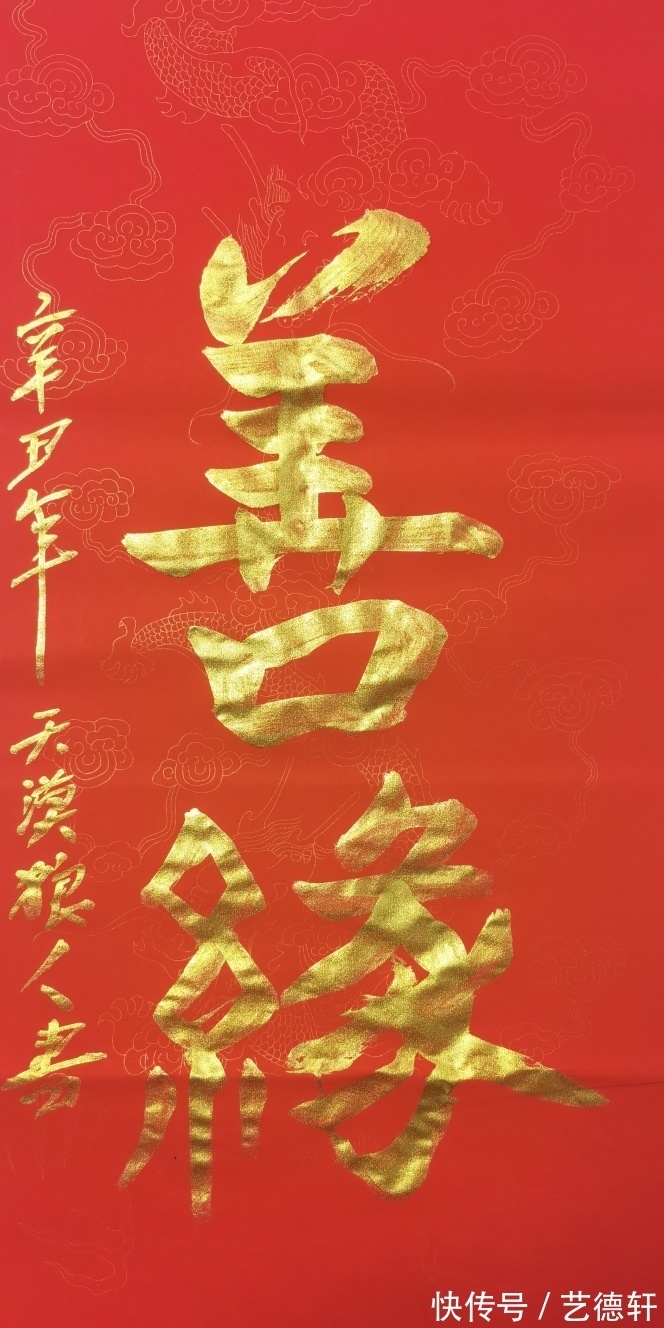 善缘
辛丑年 天漠狼人书
快传号 / 艺德轩